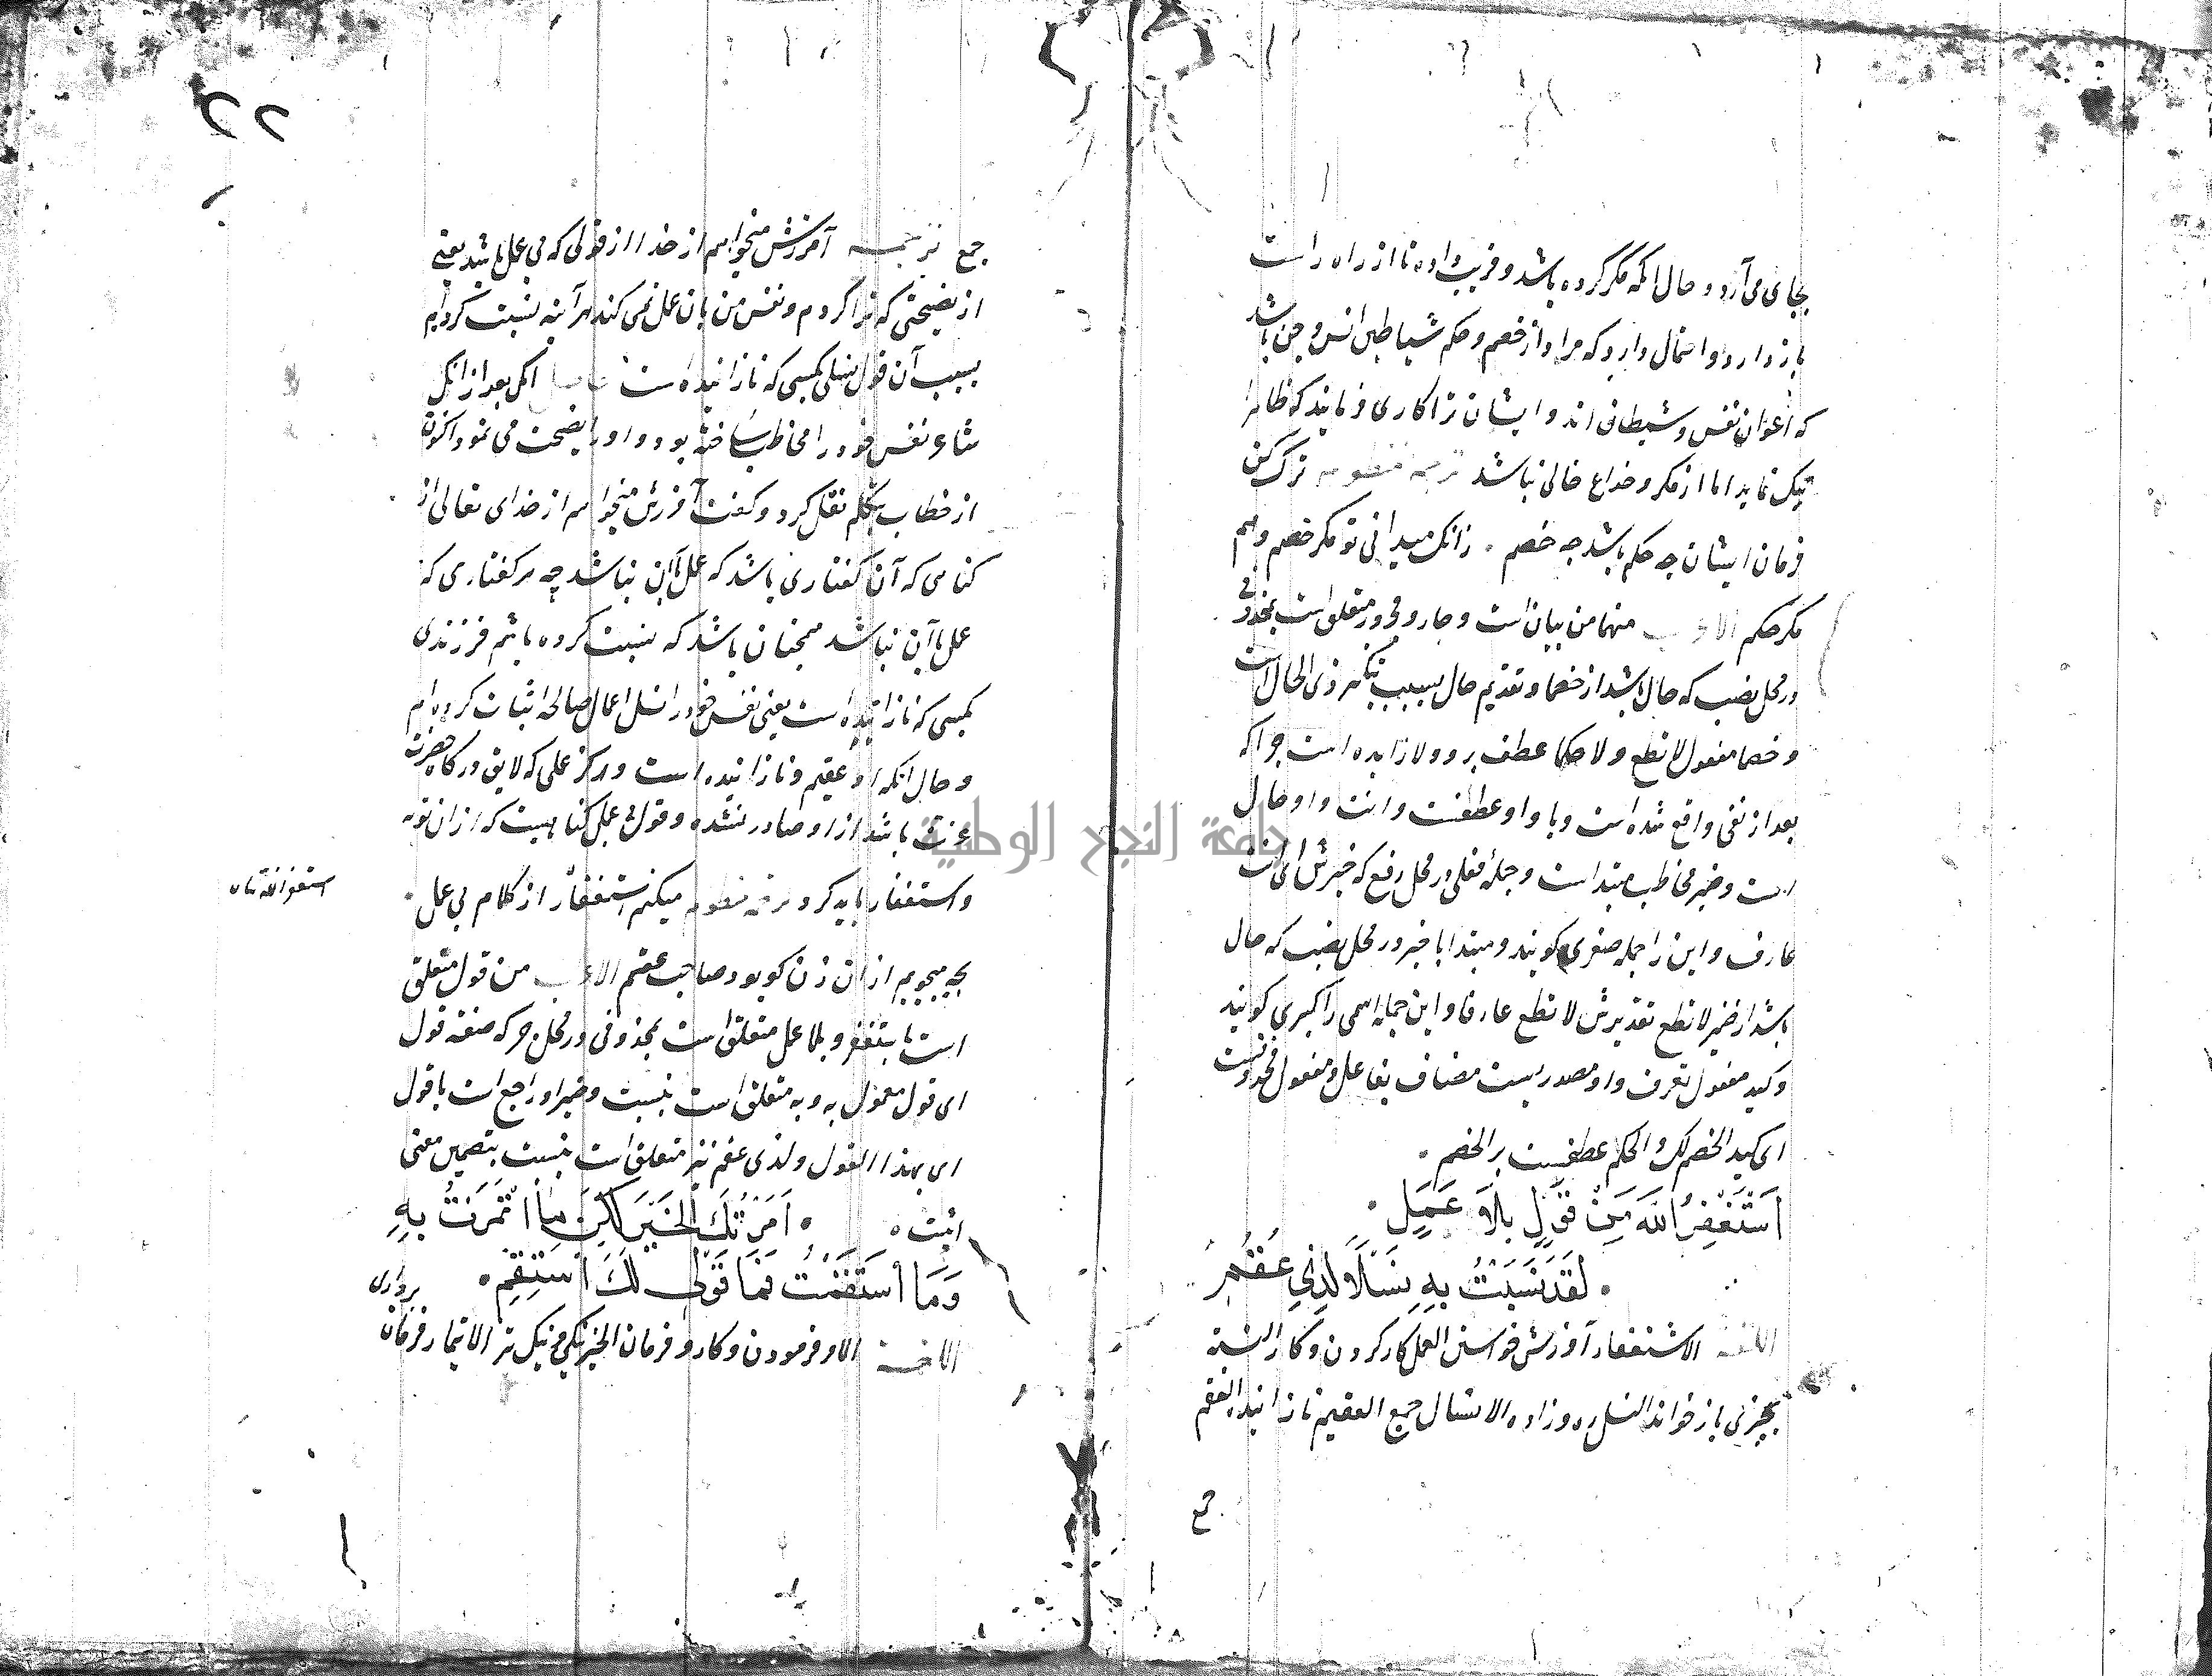 بجای می آرد و حال انکه مکر کرده باشد و فریب داده تا از راه راست
باز دارد و احتمال دارد که مراد از خصم و حکم شیاطین انس و جن باشد
که اعوان نفس و شیطان اند و ایشان ترا کاری فرمایند که ظاهرا
نیک نماید اما از مکر و خداع خالی نباشد ترجمه منظومه ترک کن
فرمان ایشان چه حکم باشد چه خصم . زانک میدانی تو مکر خصم و هم
مکر حکم الاعراب منهما من بیان است و جار و مجرور متعلق است بمحذوفی
در محل نصب که حال باشد از خصما و تقدیم حال بسبب تنکیر ذی الحال است
و خصما مفعول لا تطع و لا حکما عطف برو و لا زایده است چرا که
بعد از نفی واقع شده است و با واو عطفست و انت واو حال
است و ضمیر مخاطب مبتداست و جمله فعلی در محل رفع که خبرش ای انت
عارف و این را جمله صغری کویند و مبتدا با خبر در محل نصب که حال
باشد از ضمیر لا تطع تقدیرش لا تطع عارفا و این جمله اسمی را کبری کویند
و کید مفعول تعرف و او مصدریست مضاف بفاعل و مفعول محذوفست
ای کید الخصم لک و الحکم عطفست بر الخصم .
اَسْتَغْفِرُ اللهَ مِنْ قَوْلٍ بِلَا عَمَلٍ .
. لَقَدْ نَسَبْتُ بِهِ نَسْلًا لِذِي عُقُمِ
اللغة الاستغفار آمرزش خواستن العمل کار کردن و کار النسبة
بچیزی باز خواندن النسل ره و زاده الانسال جمع العقیم نازاینده العقم
جمع
جمع ترجمه آمرزش میخواهم از خدا از قولی که بی عمل باشد یعنی
از نصیحتی که ترا کردم و نفس من بان عمل نمی کند هرآینه نسبت کرده ام
بسبب آن قول نسلی بکسی که نازاینده است حاصل انکه بعد از انکه
شاعر نفس خود را مخاطب ساخته بود و او را نصیحت می نمود اکنون
از خطاب بتکلم نقل کرد و کفت آمرزش میخواهم از خدای تعالی از
کناهی که آن کفتاری باشد که عمل بآن نباشد چه هر کفتاری که
عمل بآن نباشد همچنان باشد که نسبت کرده باشم فرزندی
بکسی که نازاینده است یعنی نفس خود را نسل اعمال صالحه اثبات کرده ام
و حال انکه او عقیم و نازاینده است و هرکز عملی که لایق درکاه حضرت
عزت باشد از او صادر نشده و قول بی عمل کناهیست که از ان توبه
و استغفار باید کرد ترجمه منظومه میکنم استغفار از کلام بی عمل .
استغفر الله
بچه میجویم از ان زن کو بود صاحب عقم الاعراب من قول متعلق
است باستغفر و بلا عمل متعلق است بمحذوفی در محل جر که صفة قول
ای قول معمول به و به متعلق است بنسبت و ضمیر او راجع است با قول
ای بهذا القول و لذی عقم نیز متعلق است بنسبت بتضمین معنی
اثبت . . اَمَرْتُكَ الْخَيْرَ لٰكِنْ مَا ائْتَمَرْتُ بِهِ
وَمَا اسْتَقَمْتُ فَمَا قَوْلِي لَكَ اسْتَقِمِ .
اللغة الامر فرمودن و کار و فرمان الخیر نیکی و نیک تر الایتمار فرمان
برداری
جامعة النجاح الوطنية